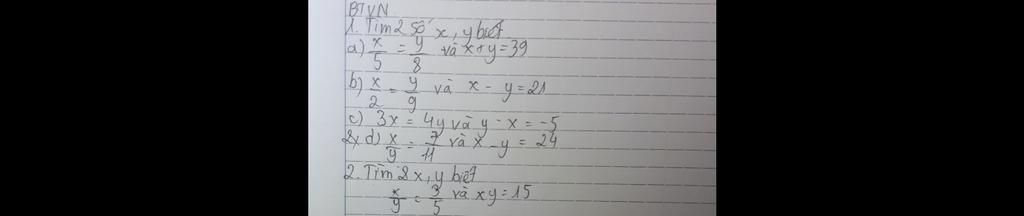 BTVN
1. Tìm 2 số x, y biết
a) x/5 = y/8 và x + y = 39
b) x/2 = y/9 và x - y = 21
c) 3x = 4y và y - x = -5
d) x/y = 7/11 và x - y = 24
2. Tìm x, y biết
x/y = 3/5 và xy = 15